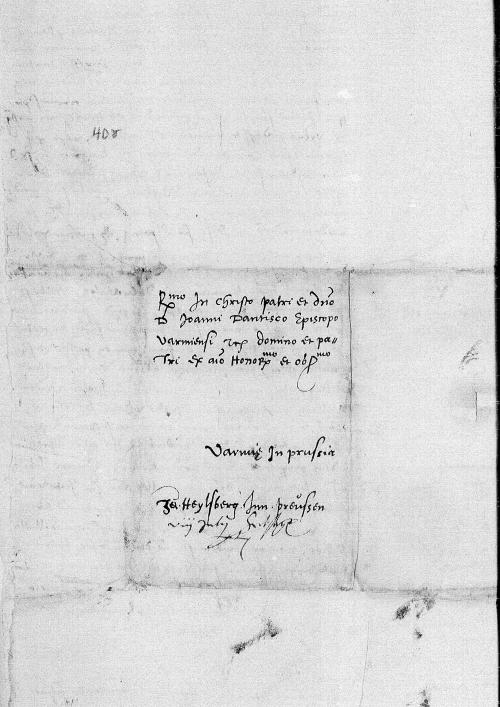 408
R.mo In Christo patri et dno
D Joanni Dantisco Episcopo
Varmiensi etc domino et pa=
tri ex aĩo Honormo et obsmo
Varmię In prussia
Zu Heylsberg Inn preüssen
viij Julij